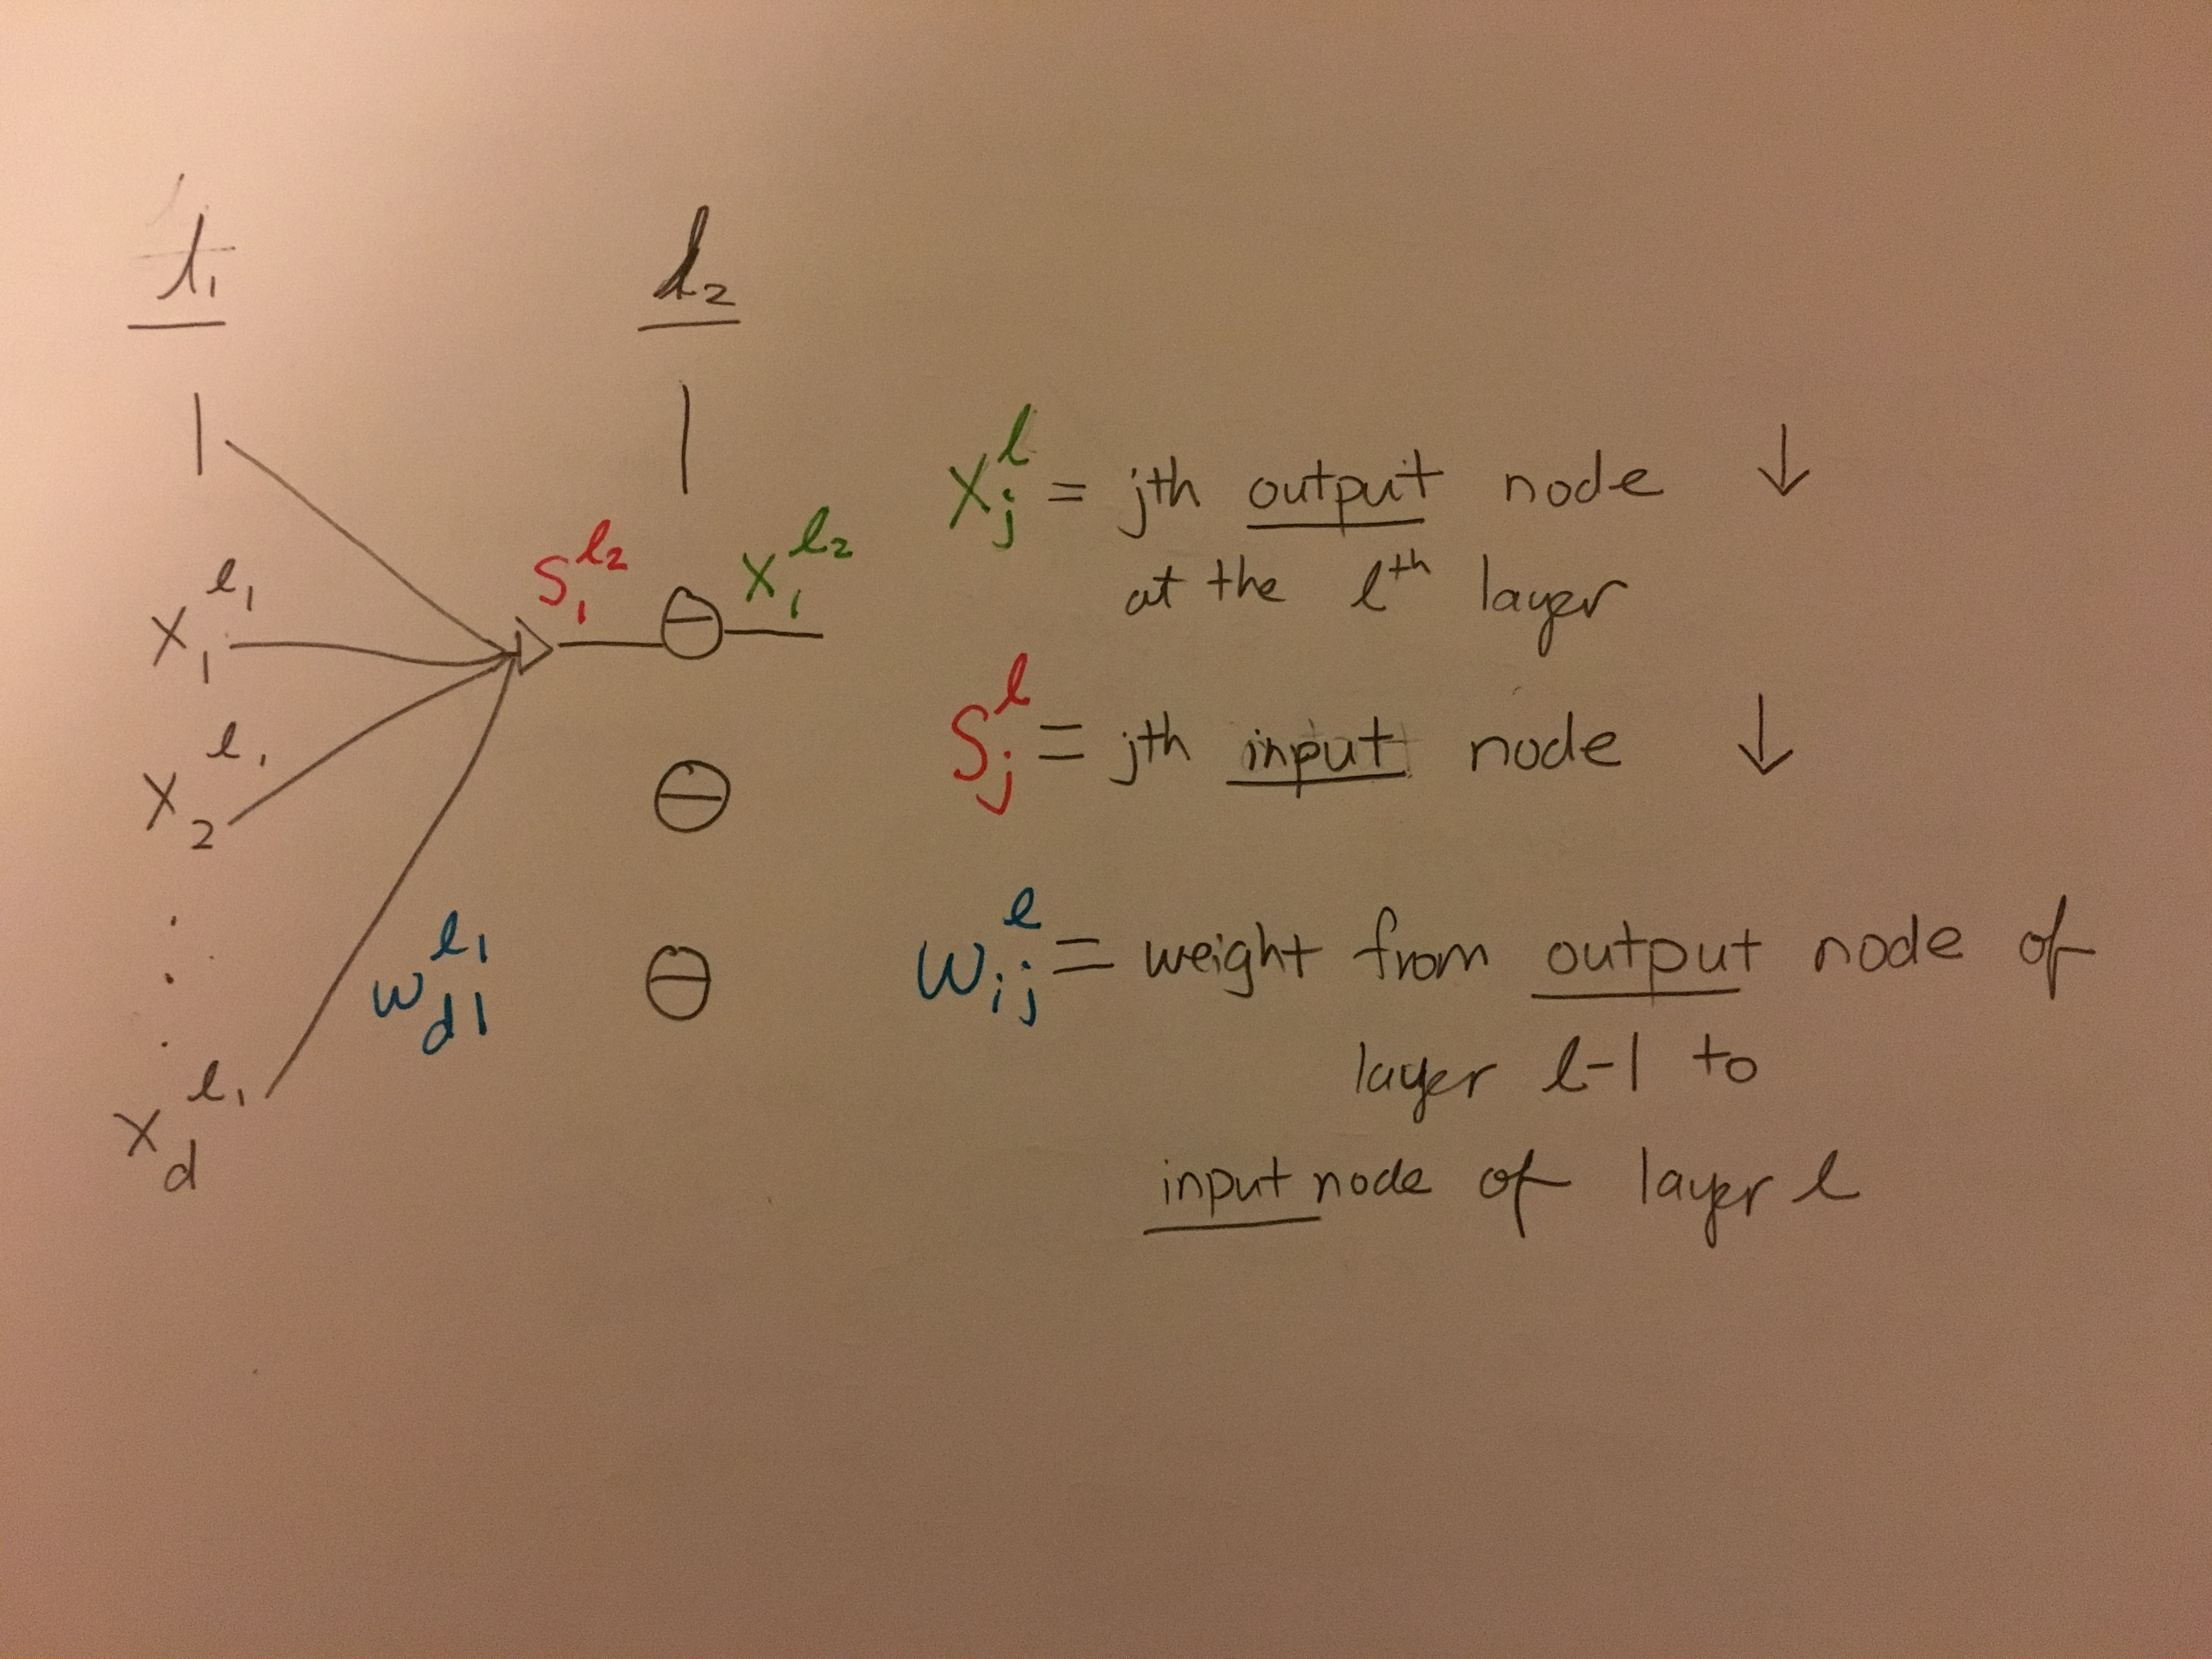 l₁ l₂
1 1
x₁^l₁
S₁^l₂ x₁^l₂
x₂^l₁
w_d1^l₁
x_d^l₁
x_j^l = jth output node ↓
at the l^th layer
S_j^l = jth input node ↓
w_ij^l = weight from output node of
layer l-1 to
input node of layer l